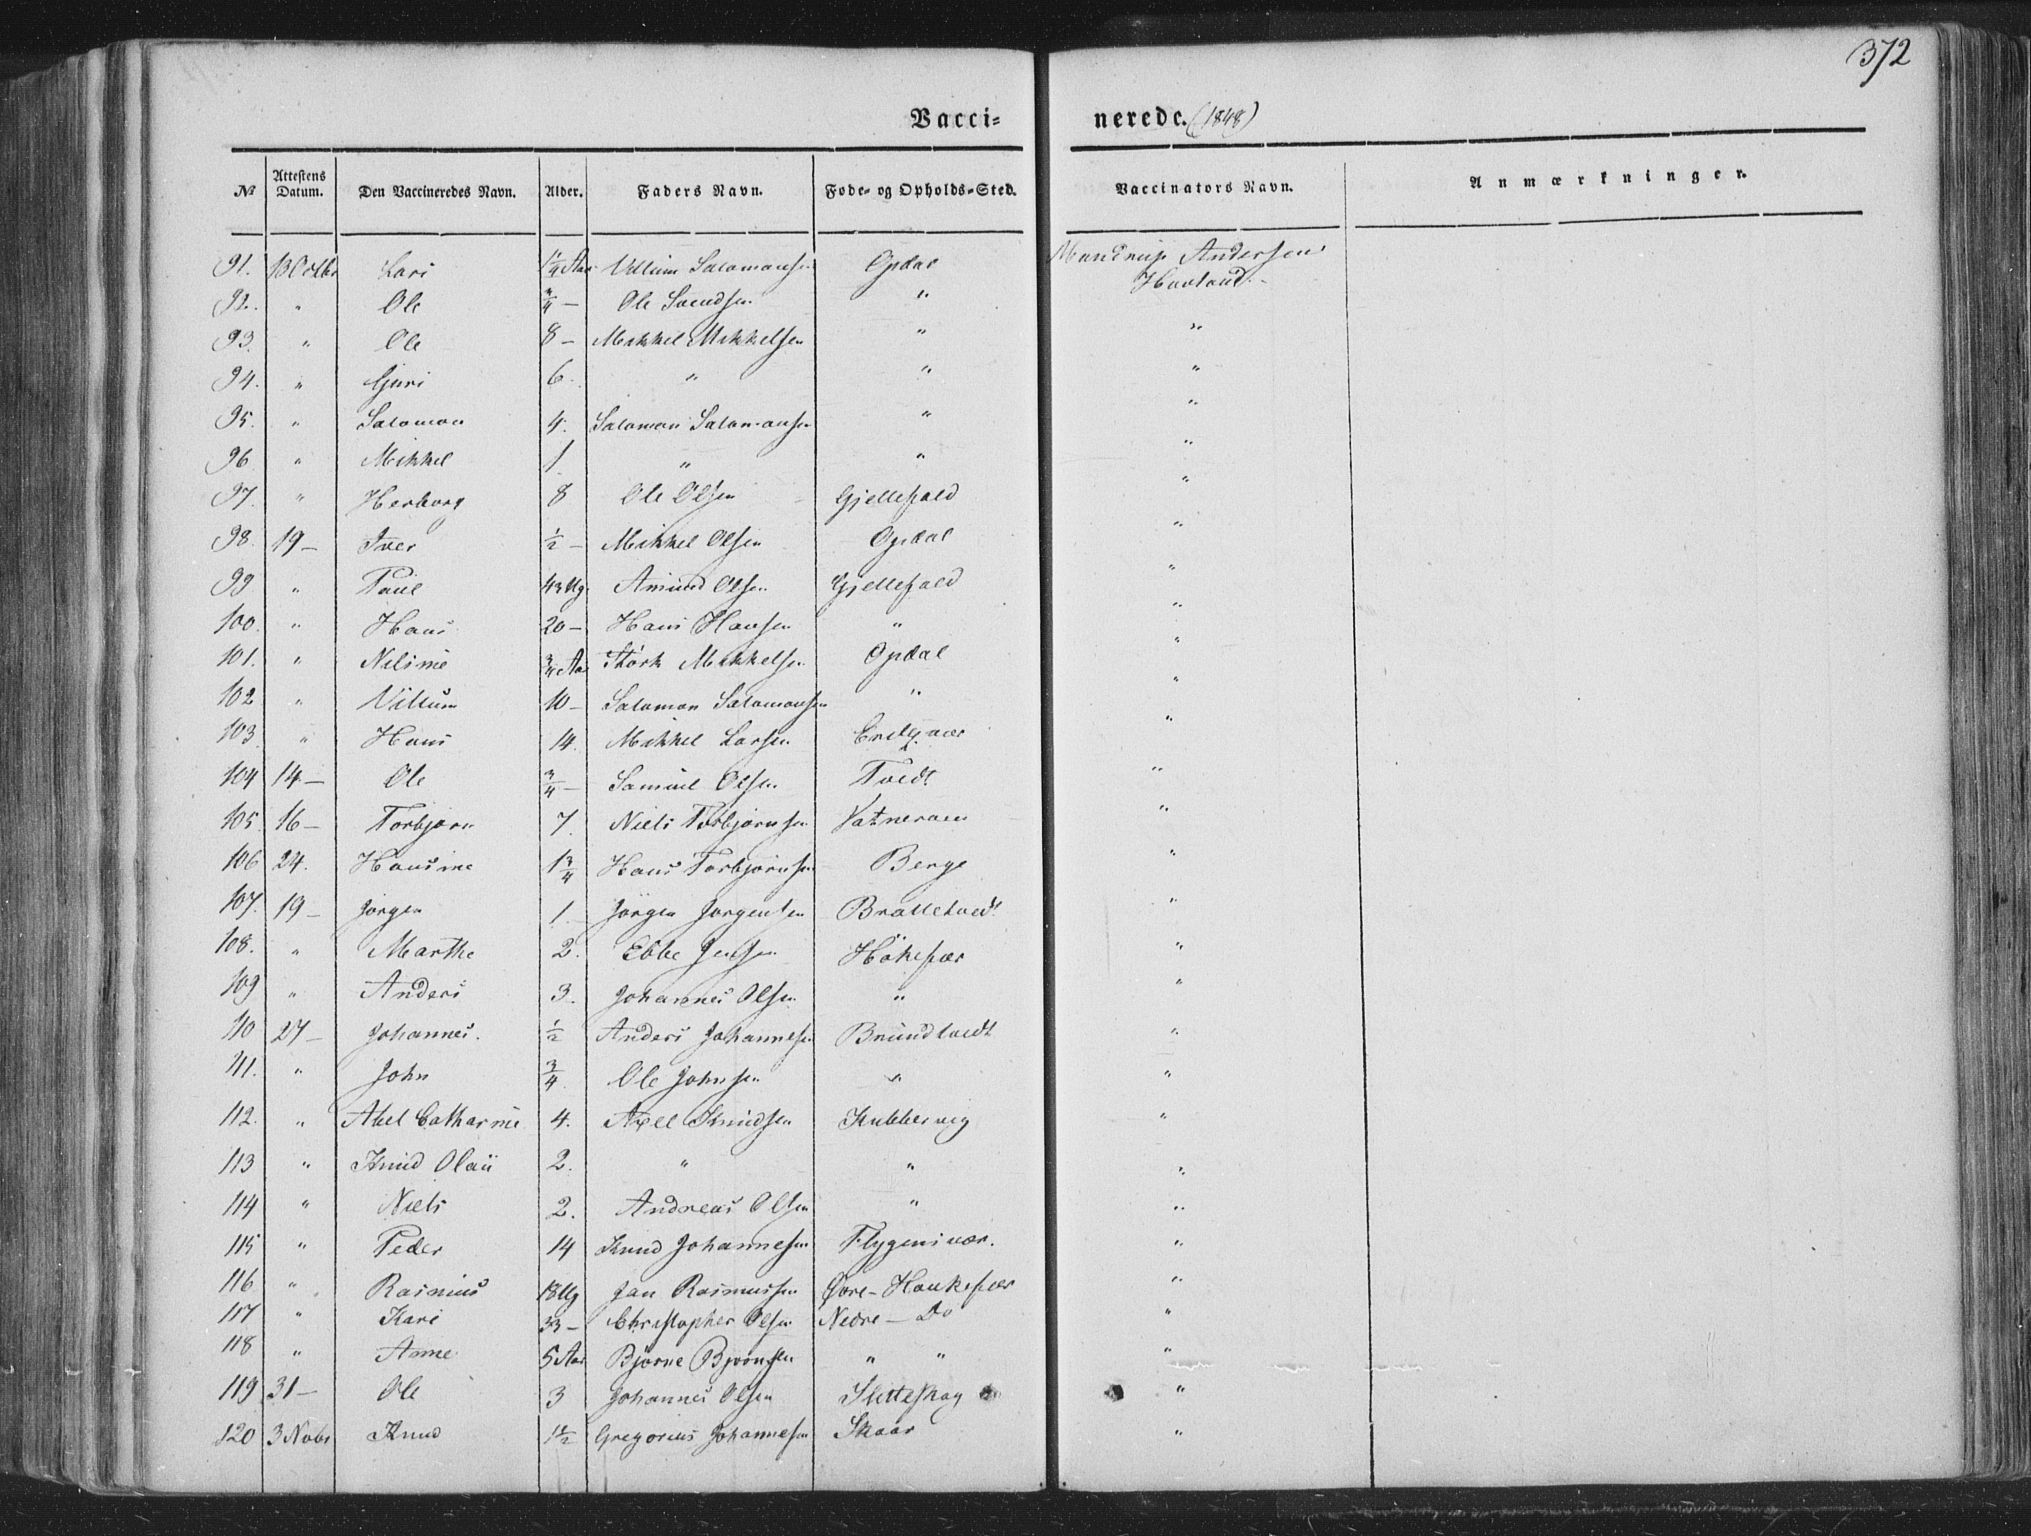 372
Vacci- nerede. (1848)
№ Attestens Datum. Den Vaccineredes Navn. Alder. Faders Navn. Føde- og Opholds-Sted. Vaccinators Navn. Anmærkninger.
91. 13 Octbr Lars 1 1/4 Aar Villum Salomonsen Opdal Mandrup Andersen
Hovland.
92. " Ole 3/4 — Ole Svendsen " "
93. " Ole 8 — Mikkel Mikkelsen " "
94. " Guri 6. " " "
95. " Salomon 4. Salomon Salomonsen " "
96 " Mikkel 1 " " "
97. " Herborg 8 Ole Olsen Gjellefald "
98. 19 — Iver 1/2 — Mikkel Olsen Opdal "
99 " Paul 43 Ug. Amund Olsen Gjellefald "
100. " Hans 20 — Hans Hansen " "
101. " Nilsine 3/4 Aar Størk Mikkelsen Opdal "
102 " Villum 10 — Salomon Salomonsen " "
103. " Hans 14. Mikkel Larsen "
104 14 — Ole 3/4 — Samuel Olsen Tvedt "
105. 16 — Torbjørn 7. Niels Torbjørnsen Vatneram "
106 24. Hansine 1 3/4 Hans Torbjørnsen Berge "
107. 19 — Jørgen 1. Jørgen Jørgensen Brattetvedt "
108. " Marthe 2. Ebbe Jensen Hökefær "
109 " Anders 3. Johannes Olsen " "
110 27 — Johannes. 1/2 Anders Johannesen Brundtvedt "
111. " John 3/4. Ole Johnsen " "
112. " Abel Catharine 4. Axel Knudsen Kubbervig "
113 " Knud Olaii 2. " " "
114 " Niels 2. Andreas Olsen " "
115 " Peder 14 Knud Johannesen Flygensvær. "
116 " Rasmus 18 Ug Jan Rasmussen Øvre — Haukefær "
117 " Kari 33 — Christopher Olsen Nedre — Do "
118 " Anne 5 Aar Bjørne Bjørnsen " " "
119 31 — Ole 3 Johannes Olsen Sletteskog "
120 3 Nobr Knud 1 1/2 Gregorius Johannesen Skaar "